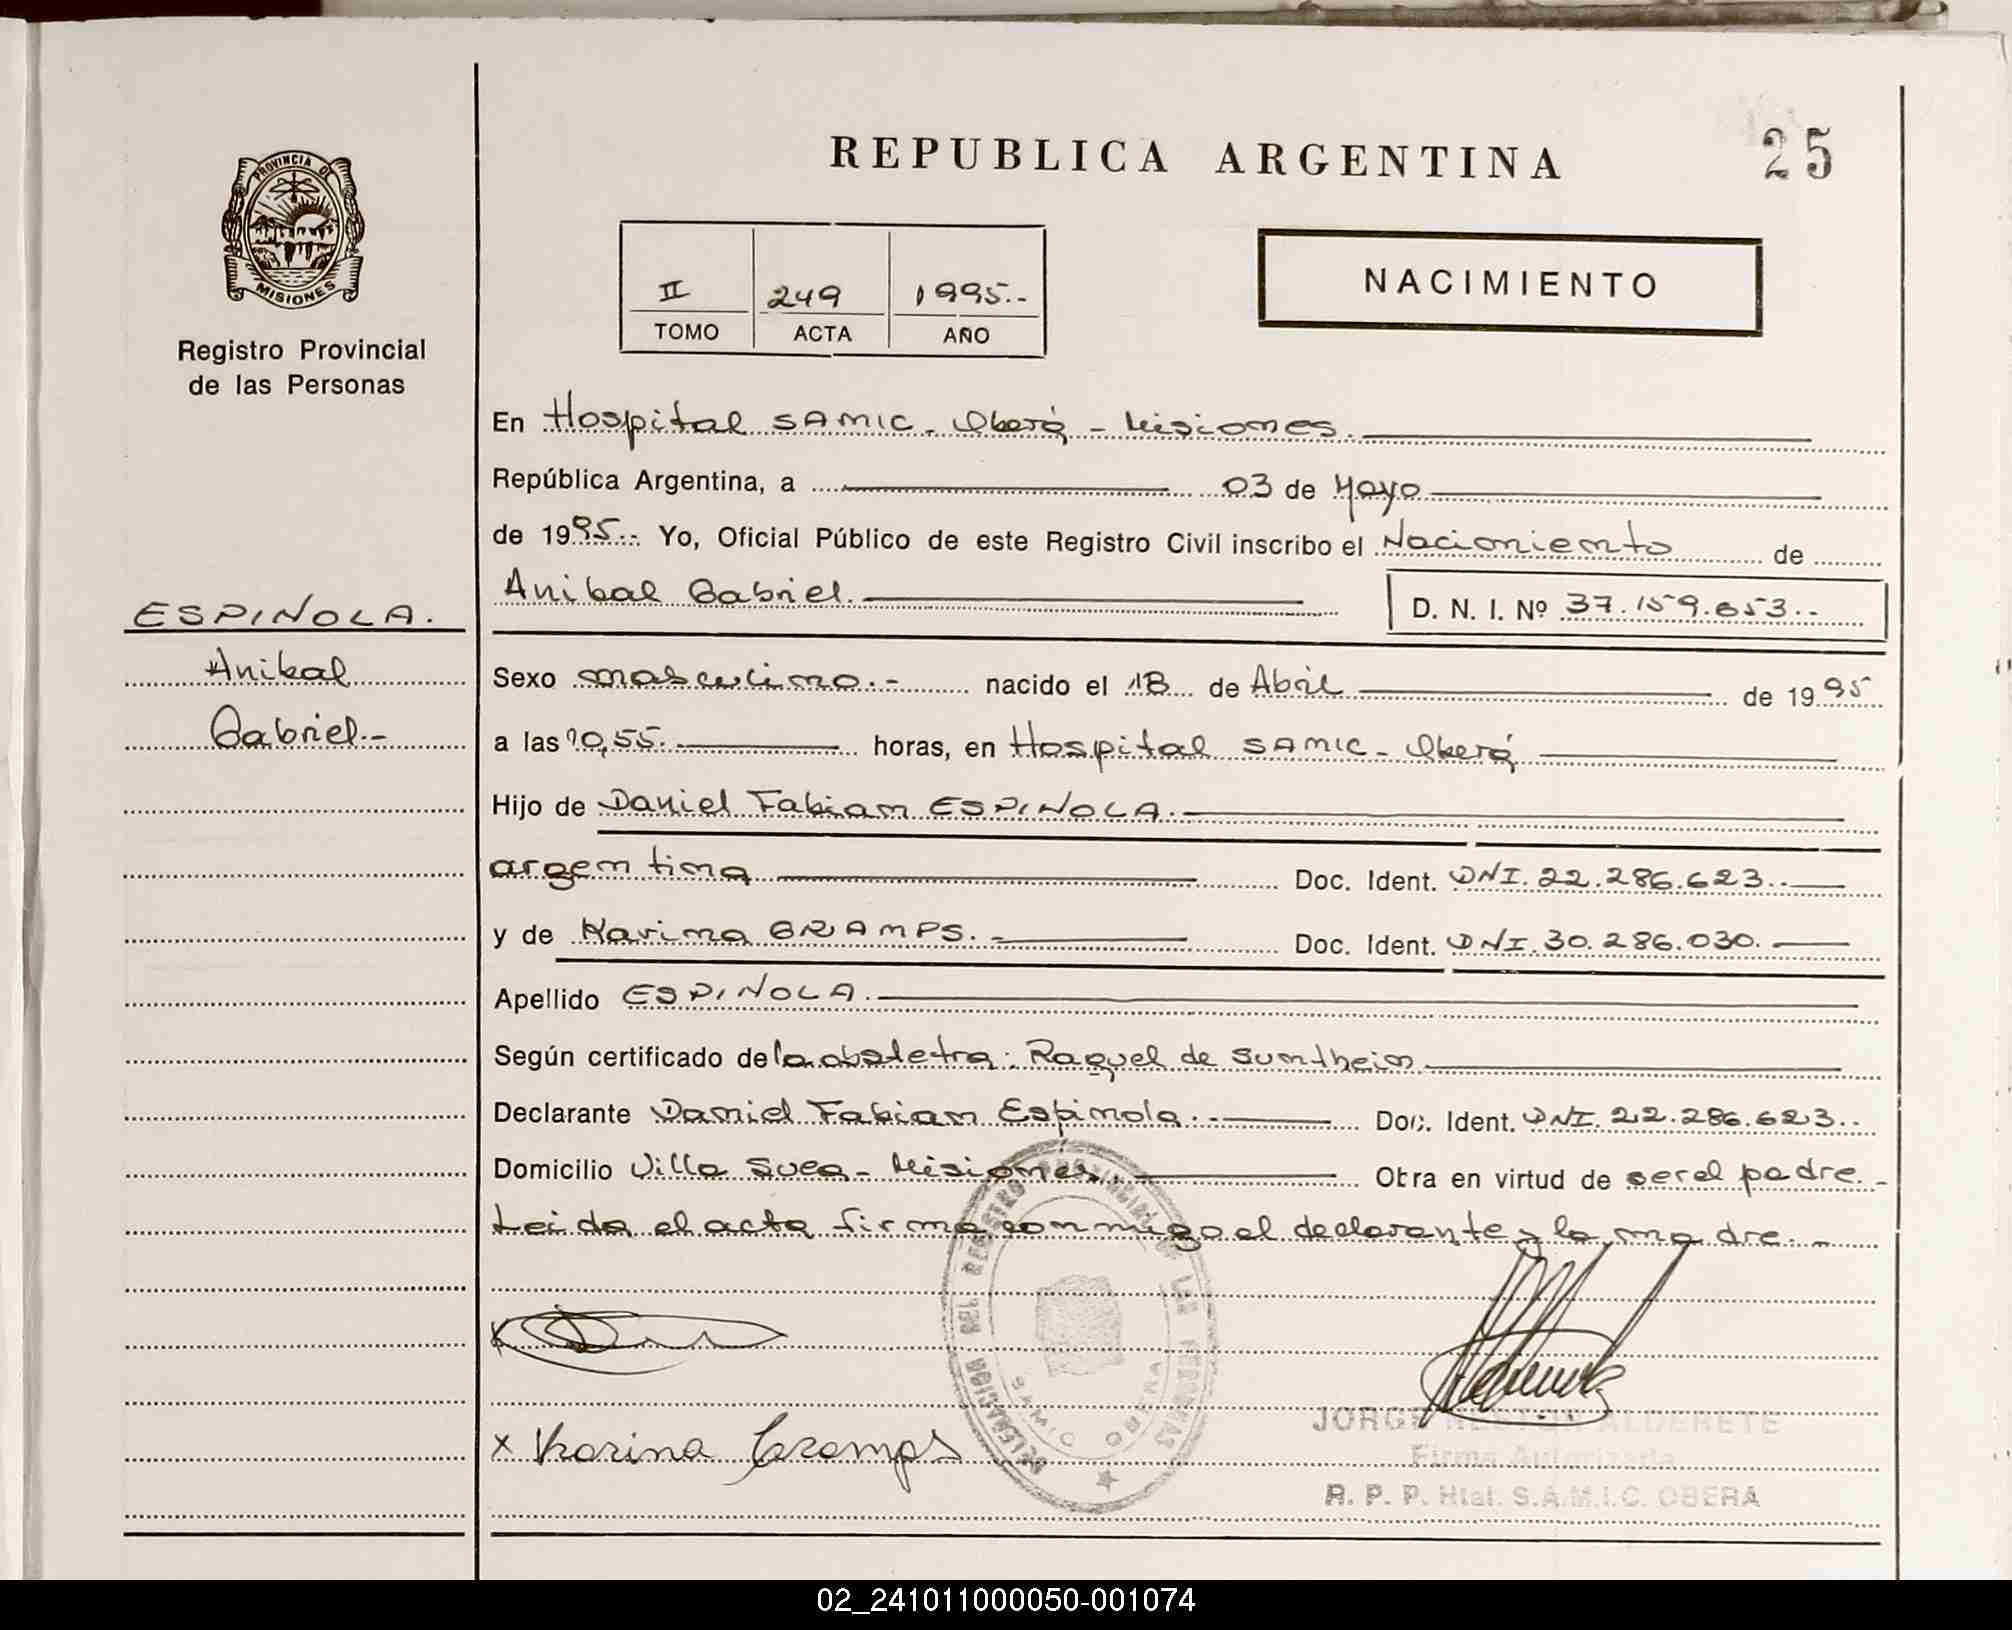 PROVINCIA DE
MISIONES
Registro Provincial
de las Personas
REPUBLICA ARGENTINA
25
II 249 1995.-
TOMO ACTA AÑO
NACIMIENTO
En Hospital SAMIC - Oberá - Misiones.
República Argentina, a 03 de Mayo
de 1995.- Yo, Oficial Público de este Registro Civil inscribo el Nacimiento de
Anibal Gabriel. D. N. I. Nº 37.159.653.-
ESPINOLA.
Anibal
Gabriel.-
Sexo masculino.- nacido el 18 de Abril de 1995
a las 10,55. horas, en Hospital SAMIC - Oberá
Hijo de Daniel Fabian ESPINOLA.
argentina Doc. Ident. DNI. 22.286.623.-
y de Karina GRAMPS.- Doc. Ident. DNI. 30.286.030.
Apellido ESPINOLA.
Según certificado de la obstetra: Raquel de
Declarante Daniel Fabian Espinola.- Doc. Ident. DNI. 22.286.623.-
Domicilio Villa Svea - Misiones. Obra en virtud de ser el padre.-
Leida el acta firma conmigo el declarante y la madre.-
DELEGACION DEL REGISTRO PROVINCIAL DE LAS PERSONAS
SAMIC OBERA
x Karina Gramps
JORGE NESTOR ALDERETE
Firma Autorizada
R. P. P. Htal. S.A.M.I.C. OBERA
02_241011000050-001074